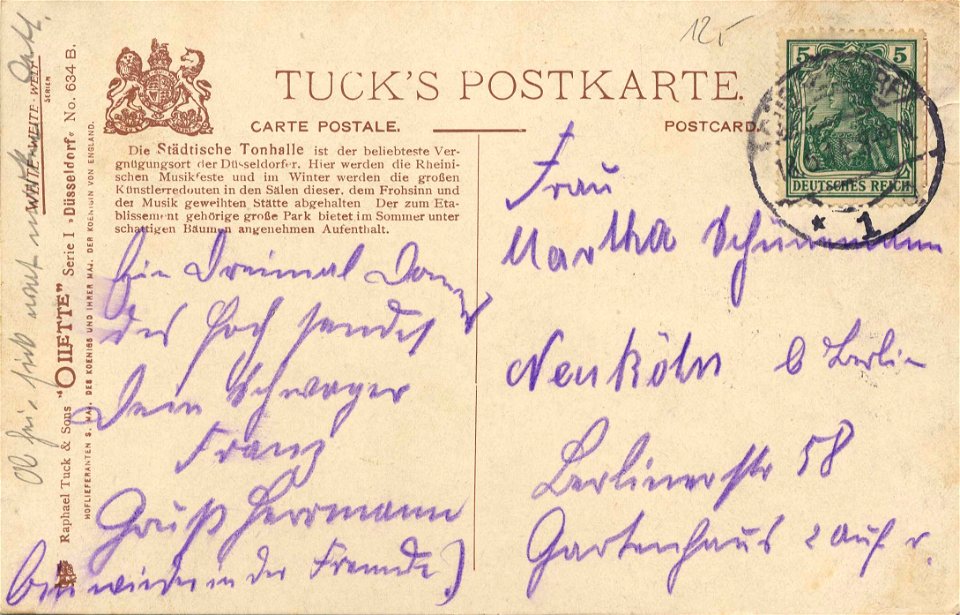 12,-
TUCK'S POSTKARTE.
CARTE POSTALE.
POSTCARD.
5 5
DEUTSCHES REICH
* 1
Die Städtische Tonhalle ist der beliebteste Ver-
gnügungsort der Düsseldorfer. Hier werden die Rheini-
schen Musikfeste und im Winter werden die großen
Künstlerredouten in den Sälen dieser, dem Frohsinn und
der Musik geweihten Stätte abgehalten Der zum Eta-
blissement gehörige große Park bietet im Sommer unter
schattigen Bäumen angenehmen Aufenthalt.
Ein Dreimal Don
des Hoch sendet
Dein Schwager
Franz
Gruß Herrmann
bin wieder in der Fremde)
Frau
Martha Schürmann
Neuköln b Berlin
Berlinerstr 58
Gartenhaus 2 Auf. r.
Raphael Tuck & Sons "OILETTE" Serie I „Düsseldorf" No. 634 B.
HOFLIEFERANTEN S. MAJ. DES KOENIGS UND IHRER MAJ. DER KOENIGIN VON ENGLAND.
WEITE-WELT
SERIEN